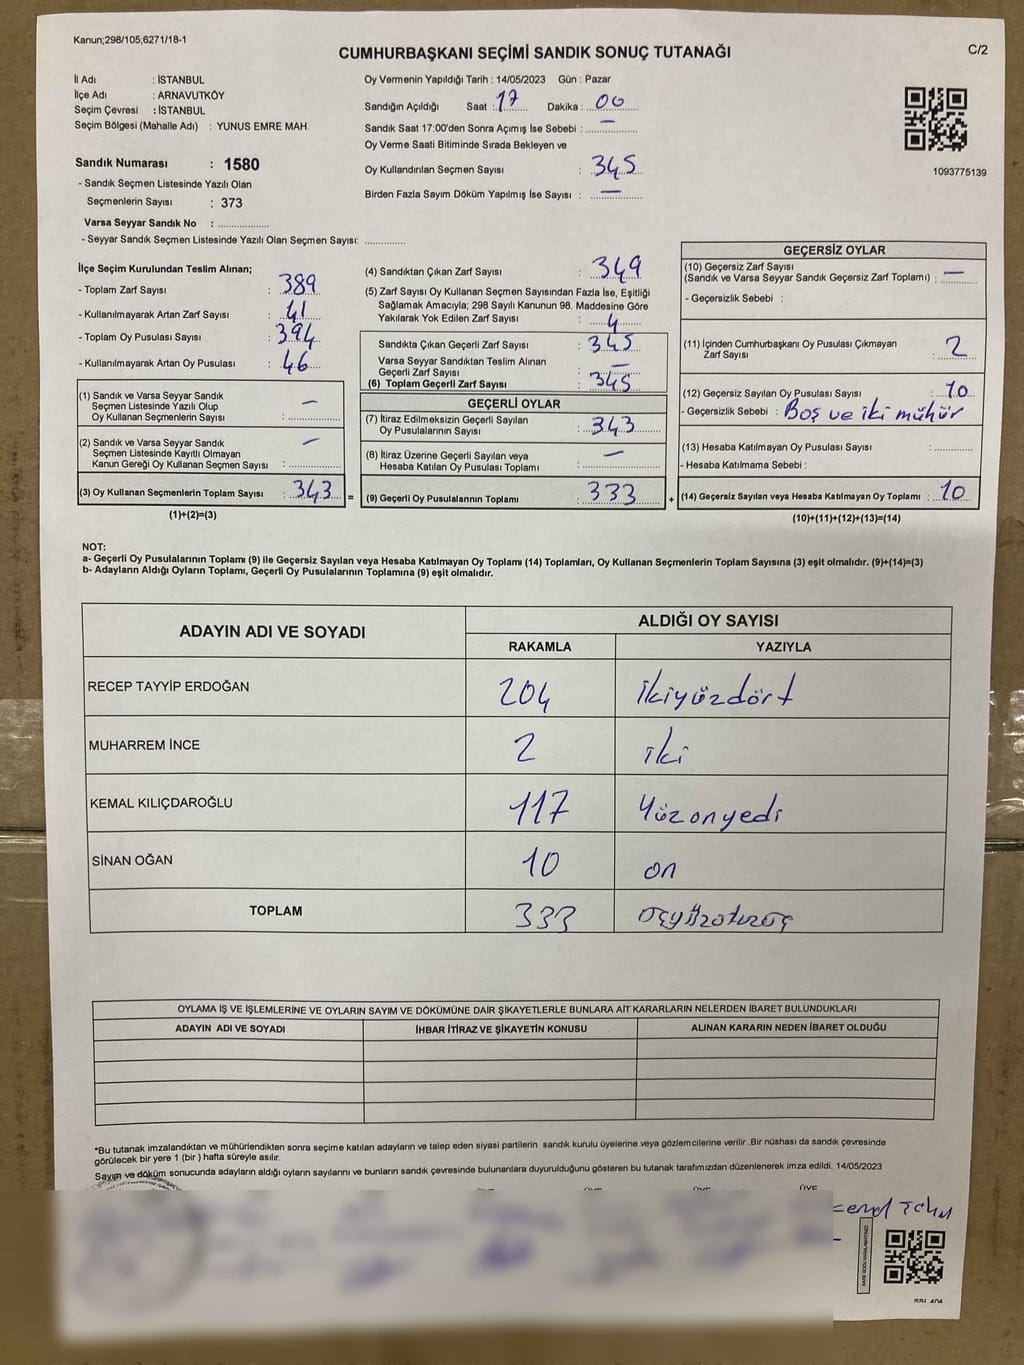 Kanun;298/105;6271/18-1
CUMHURBAŞKANI SEÇİMİ SANDIK SONUÇ TUTANAĞI
C/2
İl Adı : İSTANBUL
İlçe Adı : ARNAVUTKÖY
Seçim Çevresi : İSTANBUL
Seçim Bölgesi (Mahalle Adı) : YUNUS EMRE MAH.
Sandık Numarası : 1580
- Sandık Seçmen Listesinde Yazılı Olan
Seçmenlerin Sayısı : 373
Varsa Seyyar Sandık No : ..................
- Seyyar Sandık Seçmen Listesinde Yazılı Olan Seçmen Sayısı: ..............
Oy Vermenin Yapıldığı Tarih : 14/05/2023 Gün : Pazar
Sandığın Açıldığı Saat : 17 Dakika : 00
Sandık Saat 17:00'den Sonra Açımış İse Sebebi : —
Oy Verme Saati Bitiminde Sırada Bekleyen ve
Oy Kullandırılan Seçmen Sayısı : 345
Birden Fazla Sayım Döküm Yapılmış İse Sayısı : —
1093775139
İlçe Seçim Kurulundan Teslim Alınan;
- Toplam Zarf Sayısı : 389
- Kullanılmayarak Artan Zarf Sayısı : 41
- Toplam Oy Pusulası Sayısı : 394
- Kullanılmayarak Artan Oy Pusulası : 46
(1) Sandık ve Varsa Seyyar Sandık
Seçmen Listesinde Yazılı Olup
Oy Kullanan Seçmenlerin Sayısı : —
(2) Sandık ve Varsa Seyyar Sandık
Seçmen Listesinde Kayıtlı Olmayan
Kanun Gereği Oy Kullanan Seçmen Sayısı : —
(3) Oy Kullanan Seçmenlerin Toplam Sayısı : 343 =
(1)+(2)=(3)
(4) Sandıktan Çıkan Zarf Sayısı : 349
(5) Zarf Sayısı Oy Kullanan Seçmen Sayısından Fazla İse, Eşitliği
Sağlamak Amacıyla; 298 Sayılı Kanunun 98. Maddesine Göre
Yakılarak Yok Edilen Zarf Sayısı : 4
Sandıkta Çıkan Geçerli Zarf Sayısı : 345
Varsa Seyyar Sandıktan Teslim Alınan
Geçerli Zarf Sayısı : —
(6) Toplam Geçerli Zarf Sayısı : 345
GEÇERLİ OYLAR
(7) İtiraz Edilmeksizin Geçerli Sayılan
Oy Pusulalarının Sayısı : 343
(8) İtiraz Üzerine Geçerli Sayılan veya
Hesaba Katılan Oy Pusulası Toplamı : —
(9) Geçerli Oy Pusulalarının Toplamı : 333 +
GEÇERSİZ OYLAR
(10) Geçersiz Zarf Sayısı
(Sandık ve Varsa Seyyar Sandık Geçersiz Zarf Toplamı) : —
- Geçersizlik Sebebi :
(11) İçinden Cumhurbaşkanı Oy Pusulası Çıkmayan
Zarf Sayısı : 2
(12) Geçersiz Sayılan Oy Pusulası Sayısı : 10
- Geçersizlik Sebebi : Boş ve iki mühür
(13) Hesaba Katılmayan Oy Pusulası Sayısı :
- Hesaba Katılmama Sebebi :
(14) Geçersiz Sayılan veya Hesaba Katılmayan Oy Toplamı : 10
(10)+(11)+(12)+(13)=(14)
NOT:
a- Geçerli Oy Pusulalarının Toplamı (9) ile Geçersiz Sayılan veya Hesaba Katılmayan Oy Toplamı (14) Toplamları, Oy Kullanan Seçmenlerin Toplam Sayısına (3) eşit olmalıdır. (9)+(14)=(3)
b- Adayların Aldığı Oyların Toplamı, Geçerli Oy Pusulalarının Toplamına (9) eşit olmalıdır.
ADAYIN ADI VE SOYADI
ALDIĞI OY SAYISI
RAKAMLA YAZIYLA
RECEP TAYYİP ERDOĞAN 204 ikiyüzdört
MUHARREM İNCE 2 iki
KEMAL KILIÇDAROĞLU 117 Yüzonyedi
SİNAN OĞAN 10 on
TOPLAM 333 üçyüzotuzüç
OYLAMA İŞ VE İŞLEMLERİNE VE OYLARIN SAYIM VE DÖKÜMÜNE DAİR ŞİKAYETLERLE BUNLARA AİT KARARLARIN NELERDEN İBARET BULUNDUKLARI
ADAYIN ADI VE SOYADI İHBAR İTİRAZ VE ŞİKAYETİN KONUSU ALINAN KARARIN NEDEN İBARET OLDUĞU
*Bu tutanak imzalandıktan ve mühürlendikten sonra seçime katılan adayların ve talep eden siyasi partilerin sandık kurulu üyelerine veya gözlemcilerine verilir .Bir nüshası da sandık çevresinde
görülecek bir yere 1 (bir ) hafta süreyle asılır.
Sayım ve döküm sonucunda adayların aldığı oyların sayılarını ve bunların sandık çevresinde bulunanlara duyurulduğunu gösteren bu tutanak tarafımızdan düzenlenerek imza edildi. 14/05/2023
ÜYE